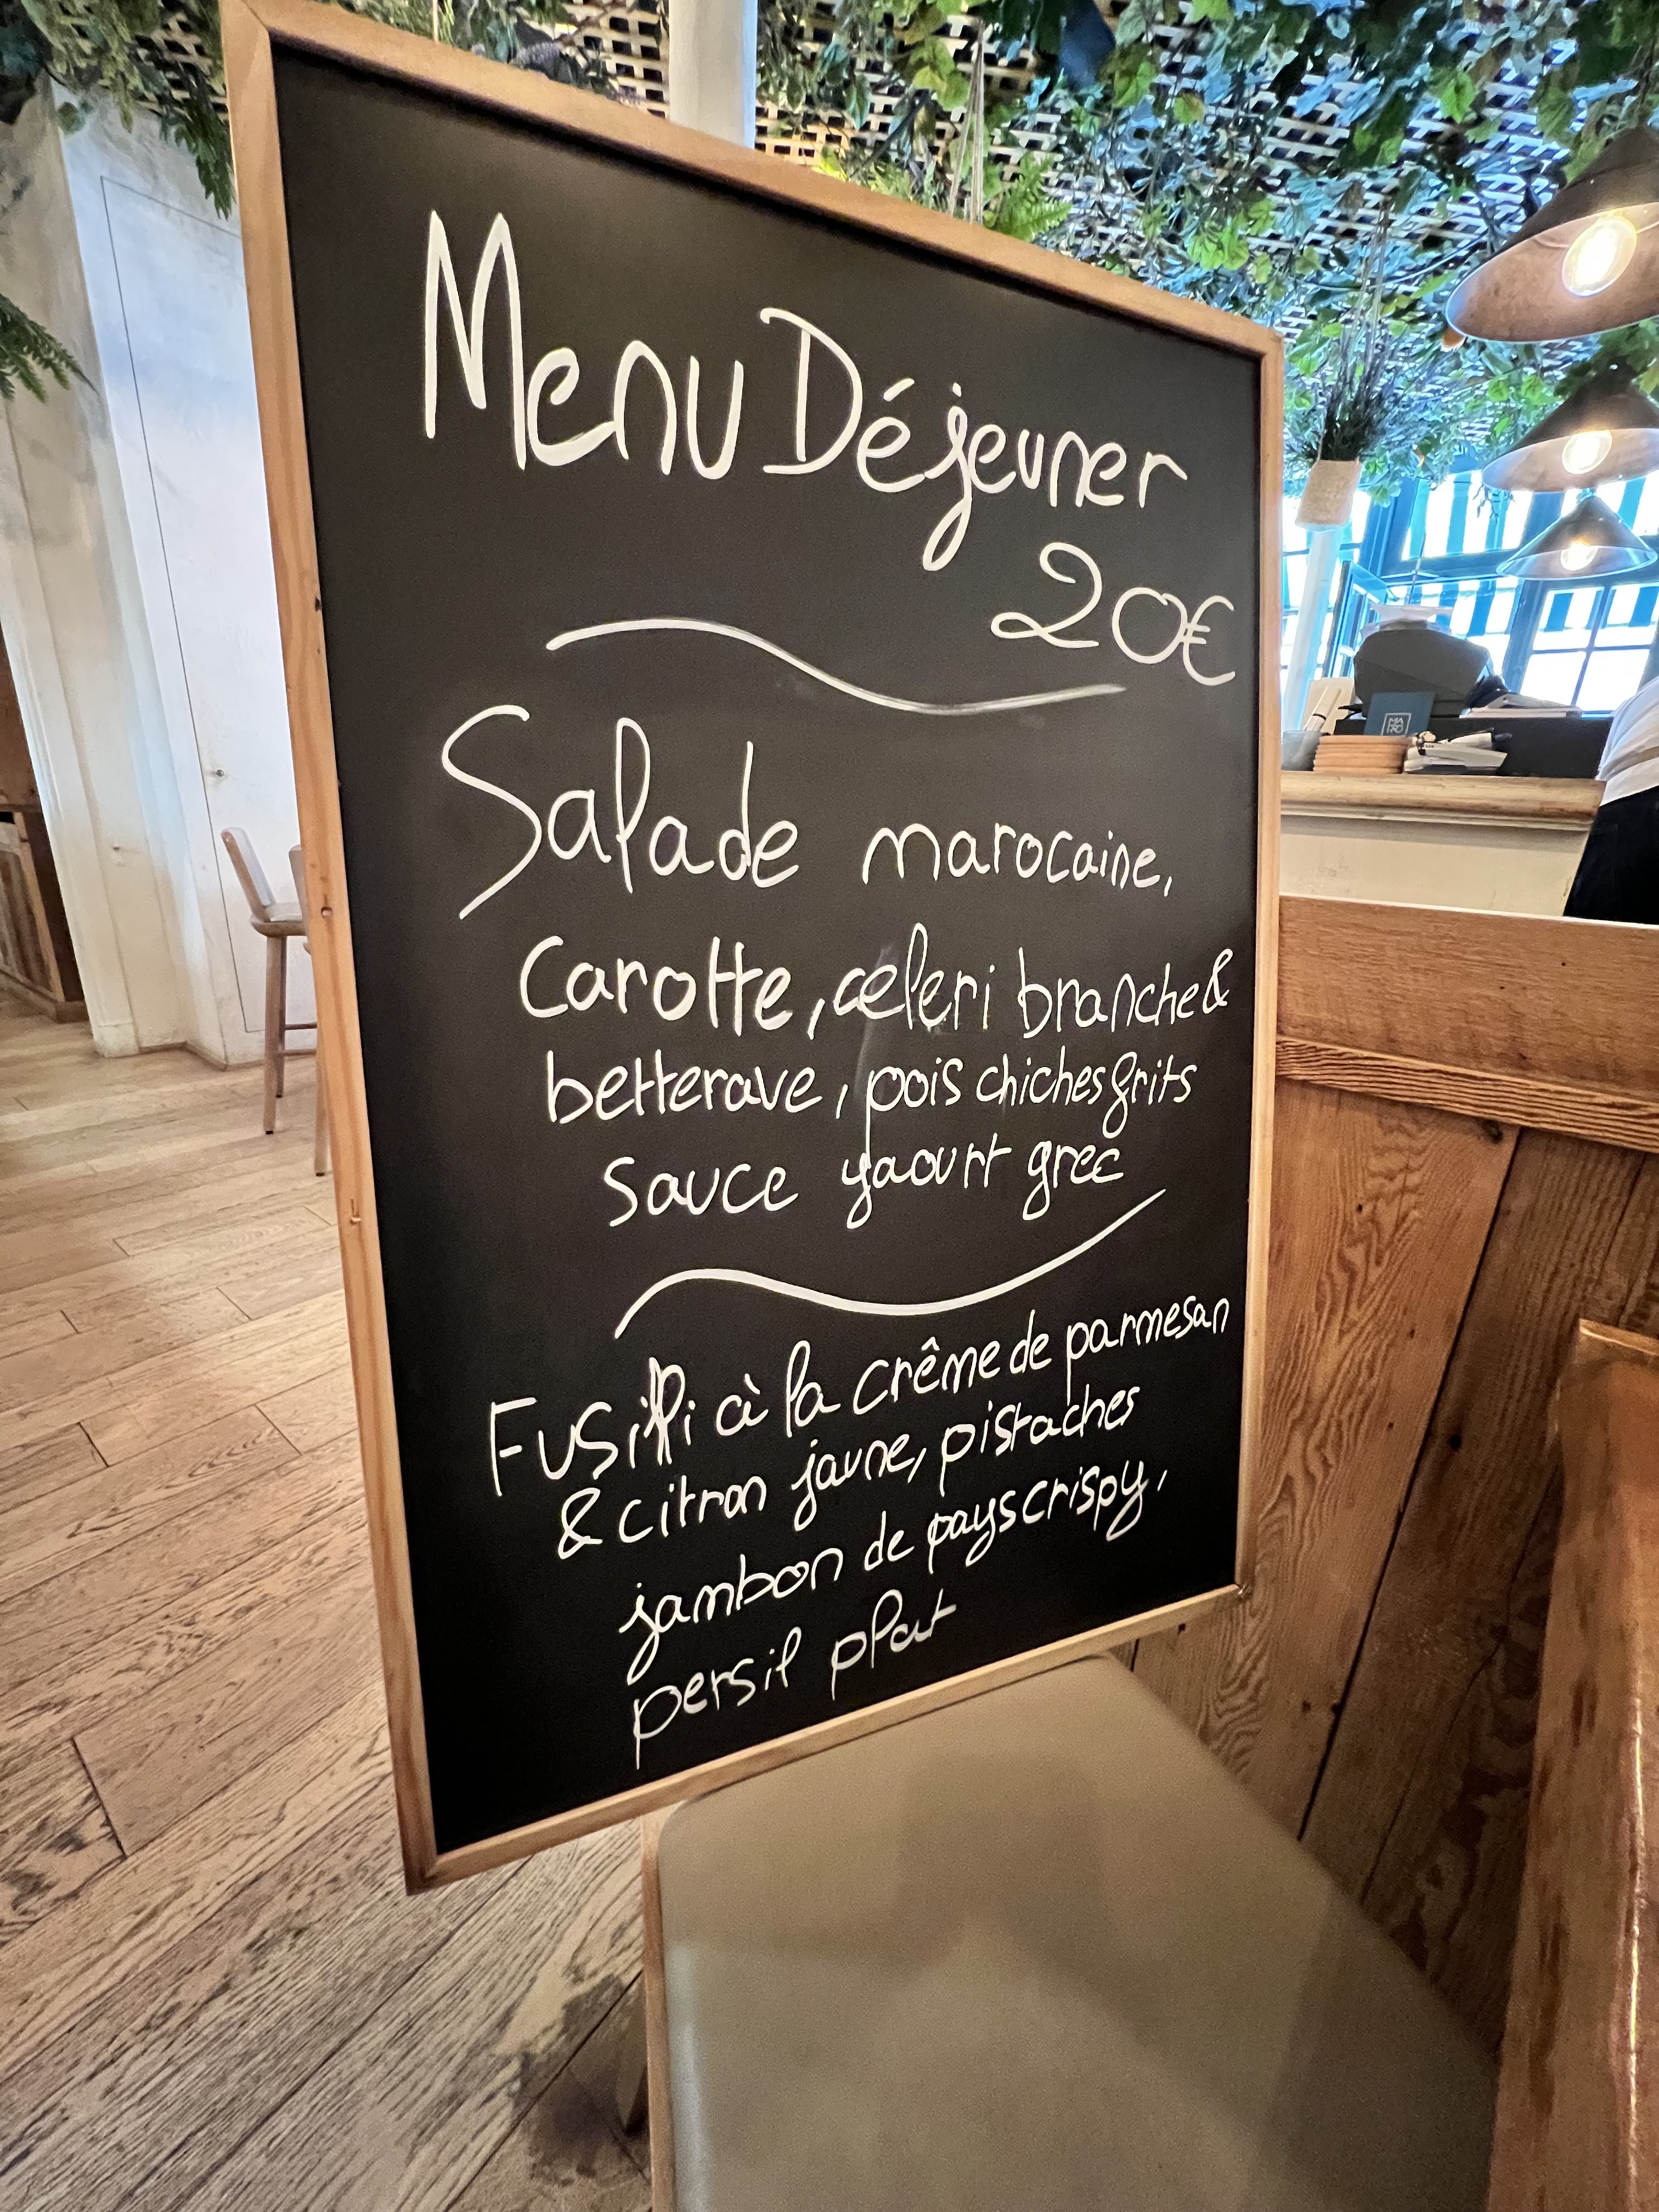 Menu Déjeuner
20€
Salade marocaine,
Carotte, céleri branche &
betterave, pois chiches frits
sauce yaourt grec
Fusilli à la crême de parmesan
& citron jaune, pistaches
jambon de pays crispy,
persil plat